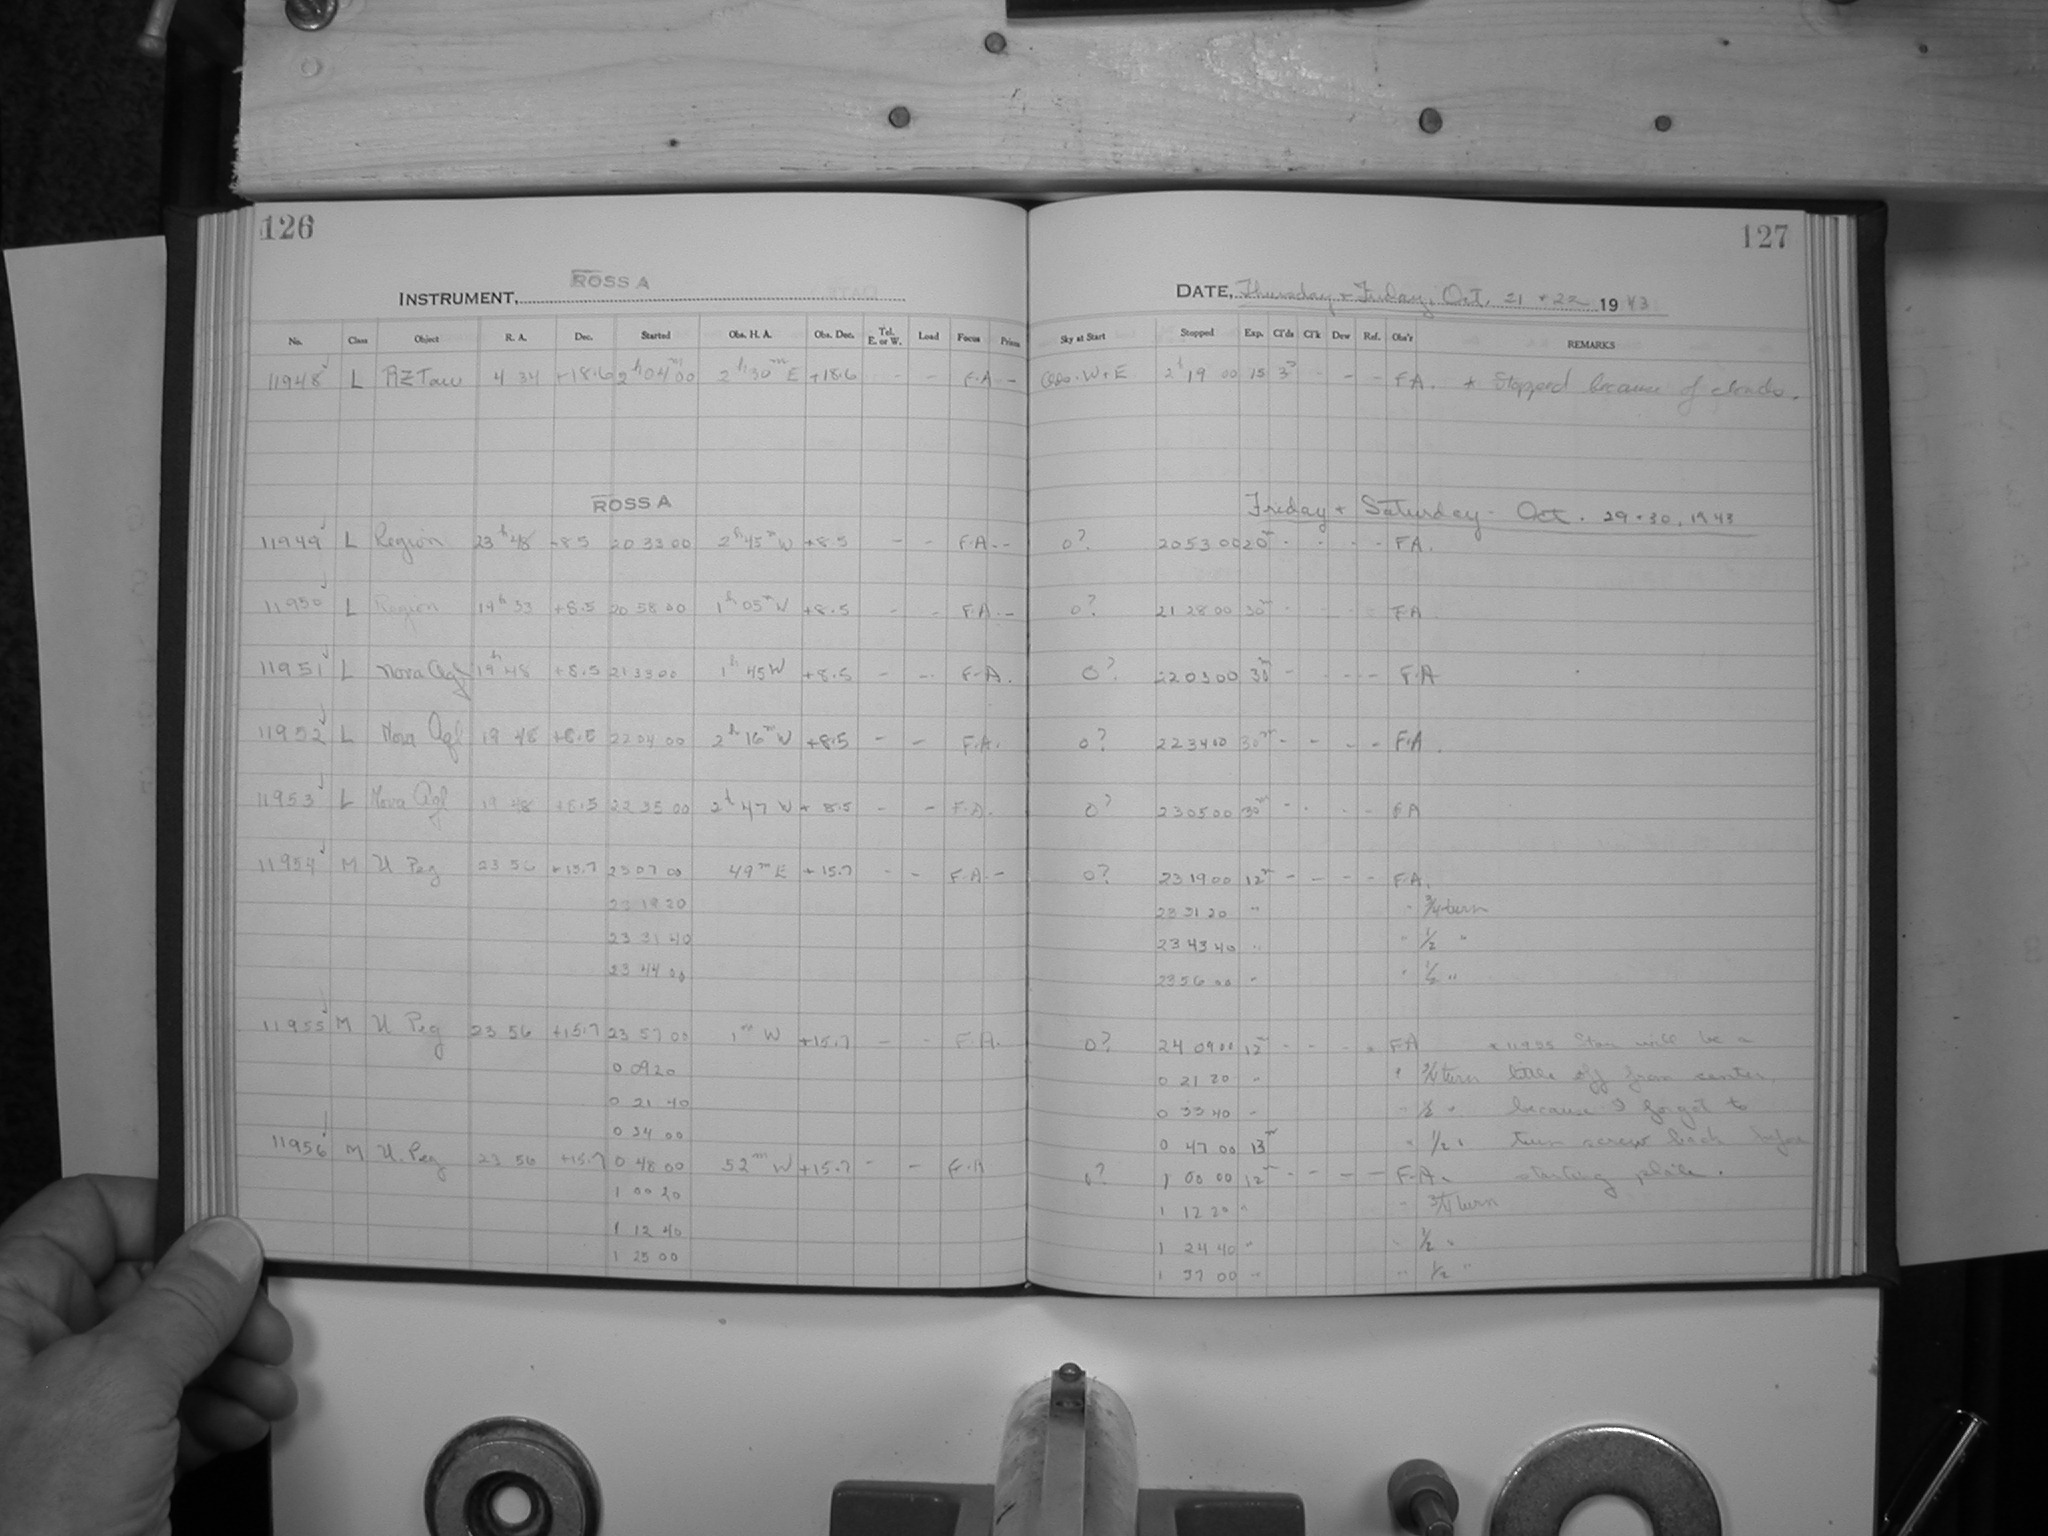 126
127
ROSS A
INSTRUMENT,
DATE, Thursday + Friday, Oct. 21 + 22 19 43
No. Class Object R. A. Dec. Started Obs. H. A. Obs. Dec. Tel. E. or W. Load Focus Prism Sky at Start Stopped Exp. Cl'ds Cl'k Dew Ref. Obs'r REMARKS
11948 L RZ Tau 4 34 +18.6 2h 04m 00 2h 30m E +18.6 - - F.A - W+E 2h 19 00 15 3? - - - F.A. * Stopped because of clouds.
ROSS A
Friday + Saturday - Oct. 29-30, 1943
11949 L Region 23h 48 +8.5 20 33 00 2h 45m W +8.5 - - F.A. - 0? 20 53 00 20m - - - - F.A.
11950 L Region 19h 33 +8.5 20 58 00 1h 05m W +8.5 - - F.A. - 0? 21 28 00 30m - - - F.A
11951 L Nova Aql 19h 48 +8.5 21 33 00 1h 45 W +8.5 - - F.A. 0? 22 03 00 30m - - - - F.A
11952 L Nova Aql 19 48 +8.5 22 04 00 2h 16m W +8.5 - - F.A. 0? 22 34 00 30m - - - - F.A.
11953 L Nova Aql 19 48 +8.5 22 35 00 2h 47 W + 8.5 - - F.A. 0? 23 05 00 30m - - - - F.A
11954 M U Peg 23 56 +15.7 23 07 00 49m E + 15.7 - - F.A. - 0? 23 19 00 12m - - - - F.A.
23 19 20 23 31 20 " " 3/4 turn
23 31 40 23 43 40 " " 1/2 "
23 44 00 23 56 00 " " 1/2 "
11955 M U Peg 23 56 +15.7 23 57 00 1m W +15.7 - - F.A. 0? 24 09 00 12m - - - - F.A * 11955 Star will be a
0 09 20 0 21 20 " " 3/4 turn little off from center,
0 21 40 0 33 40 " " 1/2 " because I forgot to
0 34 00 0 47 00 13m " 1/2 " turn screw back before
11956 M U. Peg 23 56 +15.7 0 48 00 52m W +15.7 - - F.A 0? 1 00 00 12m - - - - F.A. starting plate.
1 00 20 1 12 20 " " 3/4 turn
1 12 40 1 24 40 " " 1/2 "
1 25 00 1 37 00 " " 1/2 "